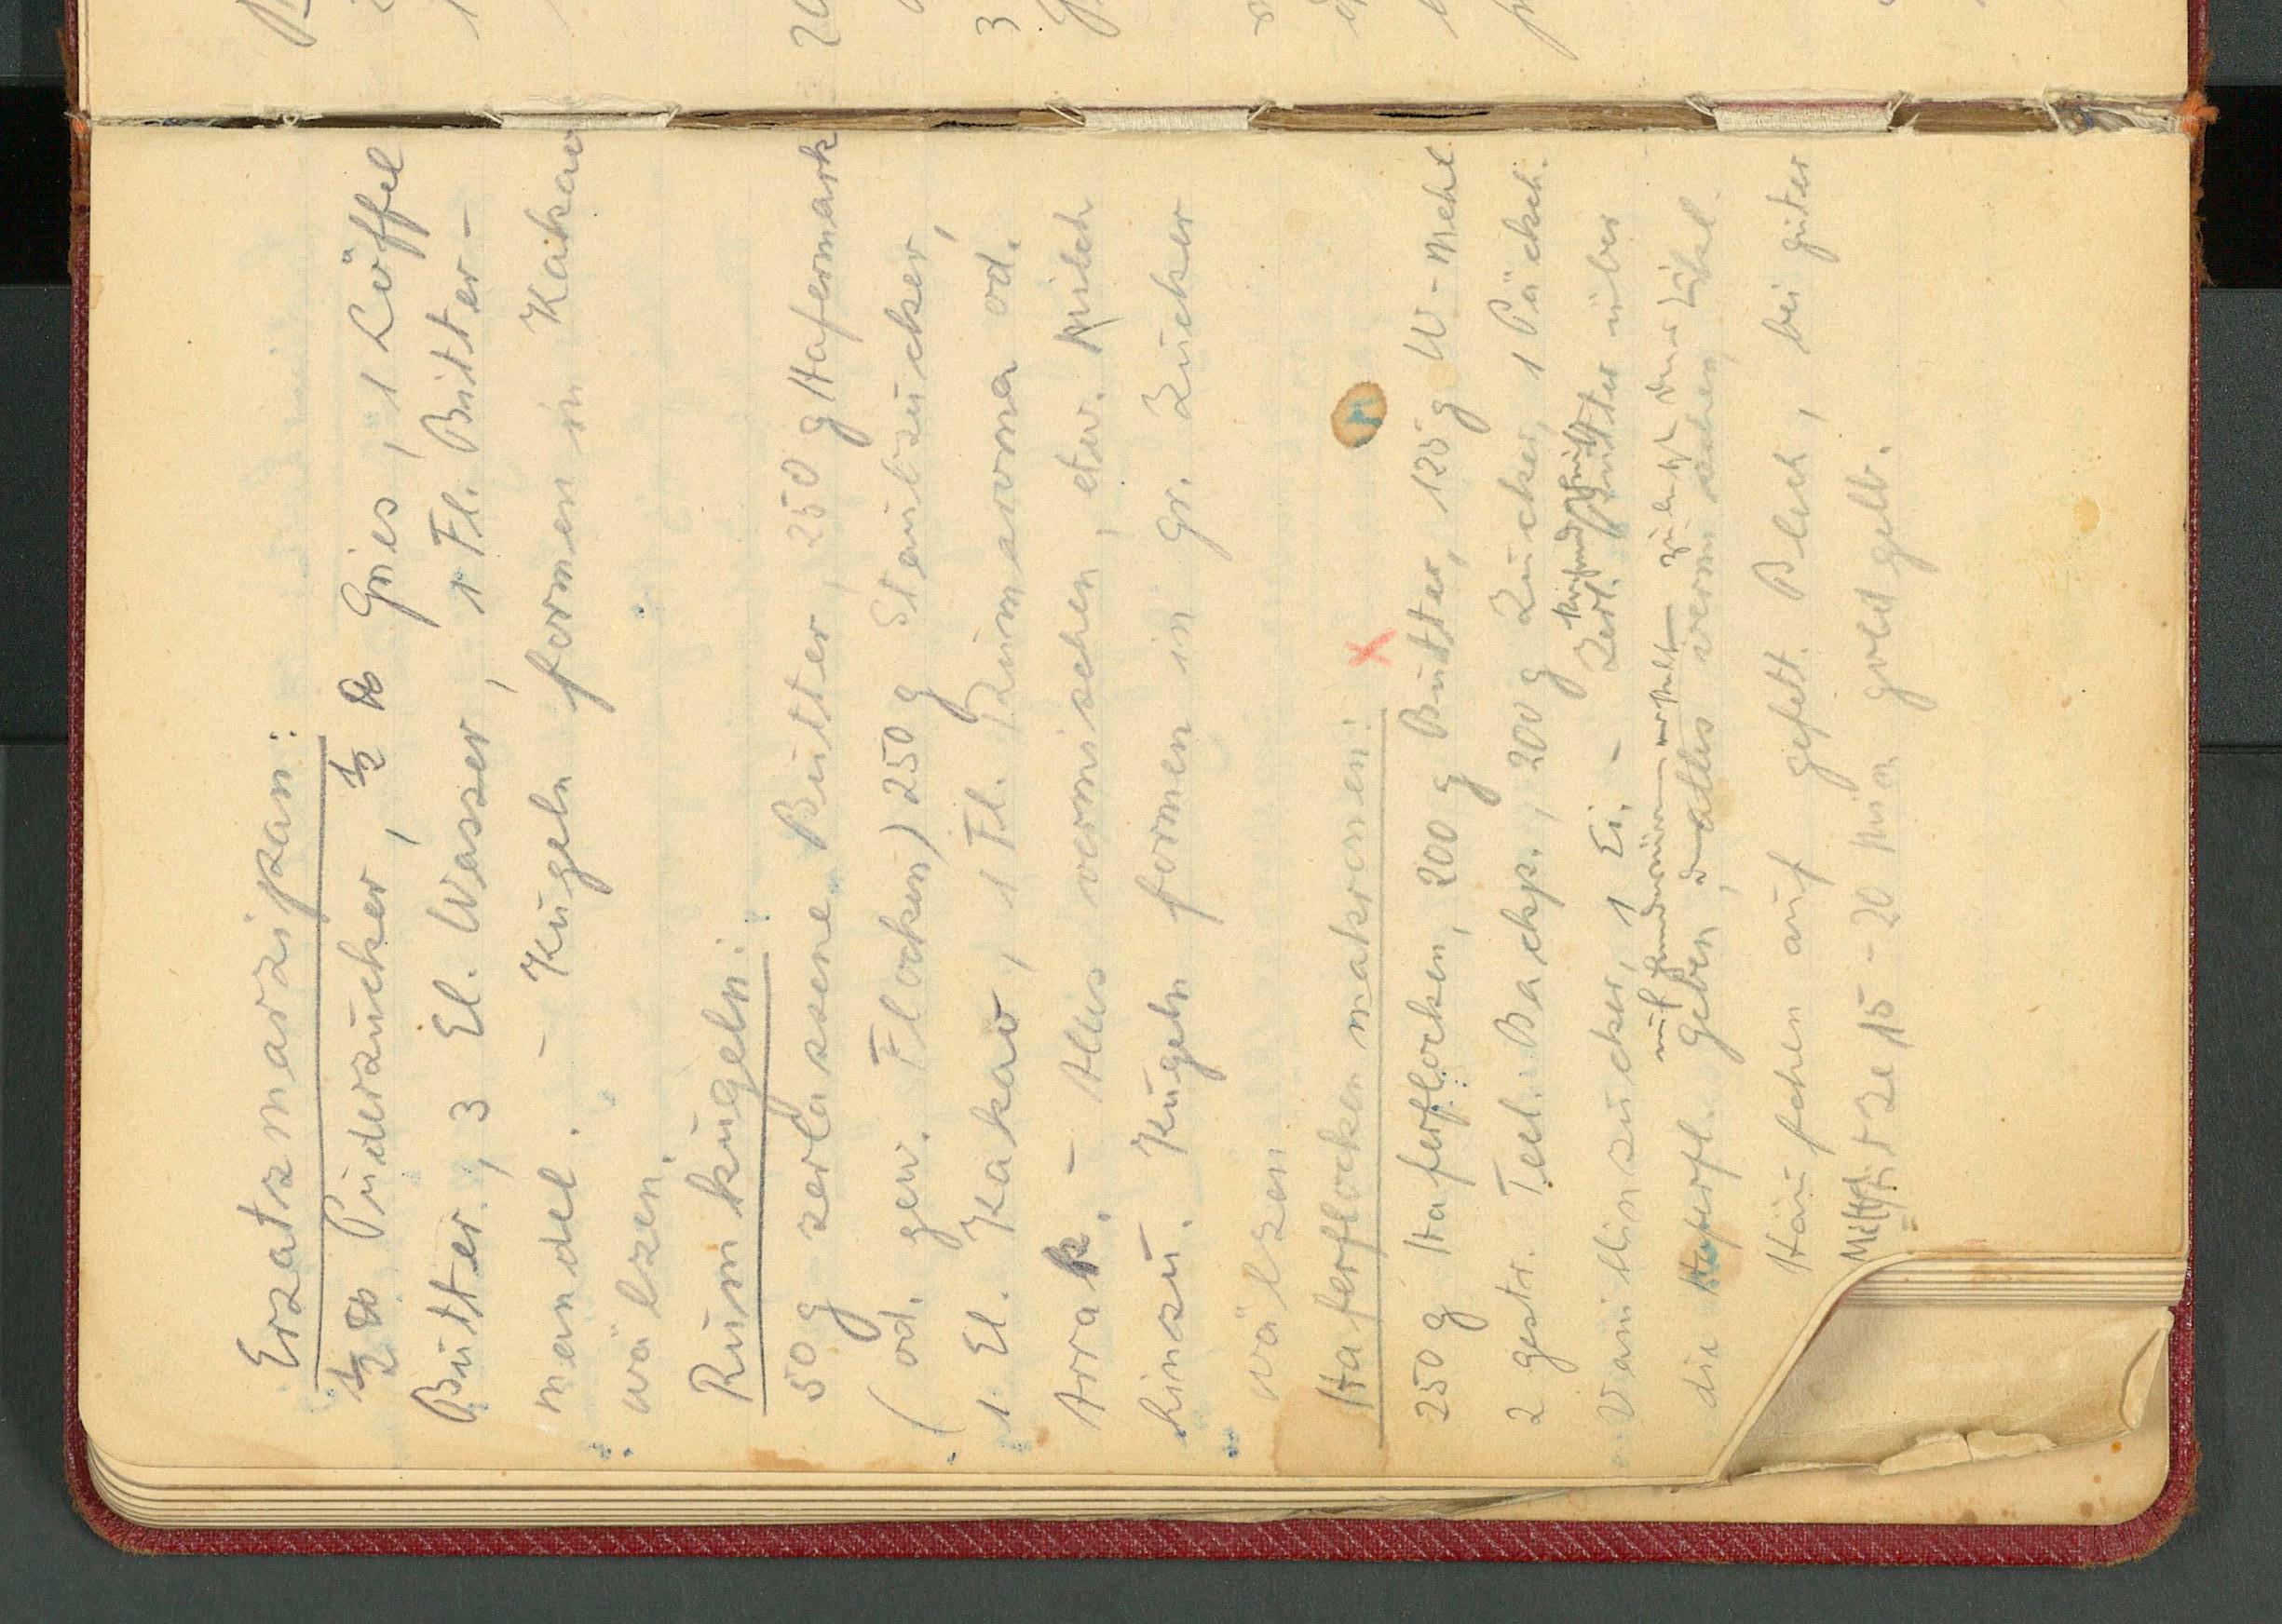 Ersatzmarzipan:
½ ℔ Puderzucker, ½ ℔ Gries, 1 Löffel
Butter, 3 El. Wasser, 1 Fl. Bitter-
mandel. - Kugeln formen in Kakao
wälzen.
Rumkugeln:
50 g zerlassene Butter, 250 g Hafermark
(od. gew. Flocken) 250 g Staubzucker,
1 El. Kakao, 1 Fl. Rumaroma od.
Arrak. - Alles vermischen, etw. Milch
hinzu. Kugeln formen in gr. Zucker
wälzen
Haferflockenmakronen: x
250 g Haferflocken, 200 g Butter, 125 g W-Mehl
2 gestr. Teel. Backp., 200 g Zucker, 1 Päckch.
Vanillinzucker, 1 Ei. - Zerl. Butter über
die Haferfl. geben, alles vermischen,
Häufchen auf gefett. Blech, bei guter
Mittelhitze 15-20 Min goldgelb.